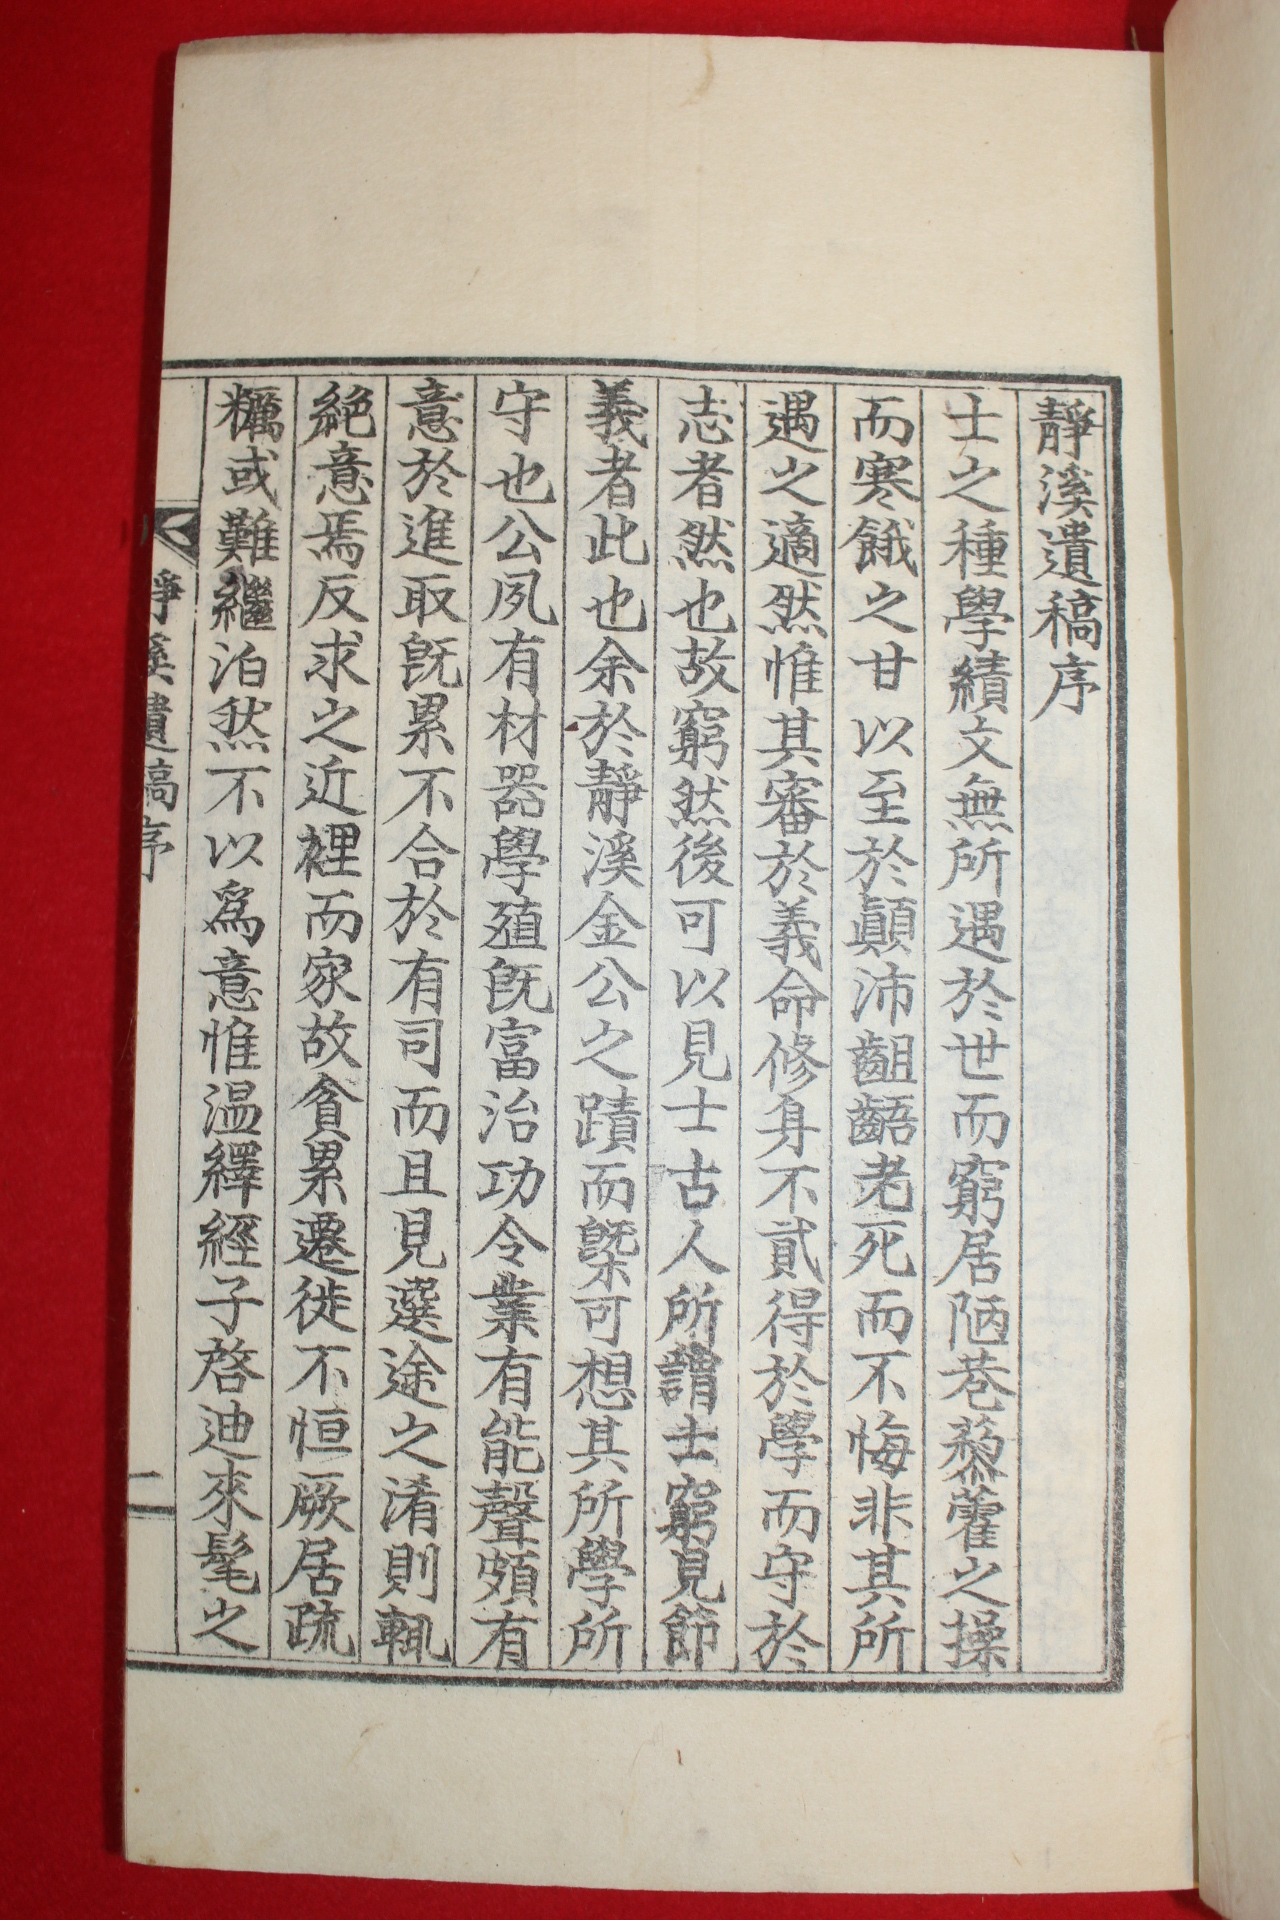 靜溪遺稿序
士之種學績文無所遇於世而窮居陋巷藜藿之操
而寒餓之甘以至於顚沛齟齬老死而不悔非其所
遇之適然惟其審於義命修身不貳得於學而守於
志者然也故窮然後可以見士古人所謂士窮見節
義者此也余於靜溪金公之蹟而槩可想其所學所
守也公夙有材器學殖旣富治功令業有能聲頗有
意於進取旣累不合於有司而且見選途之淆則輒
絶意焉反求之近裡而家故貧累遷徙不恒厥居疏
糲或難繼泊然不以爲意惟溫繹經子啓迪來髦之
靜溪遺稿序
一